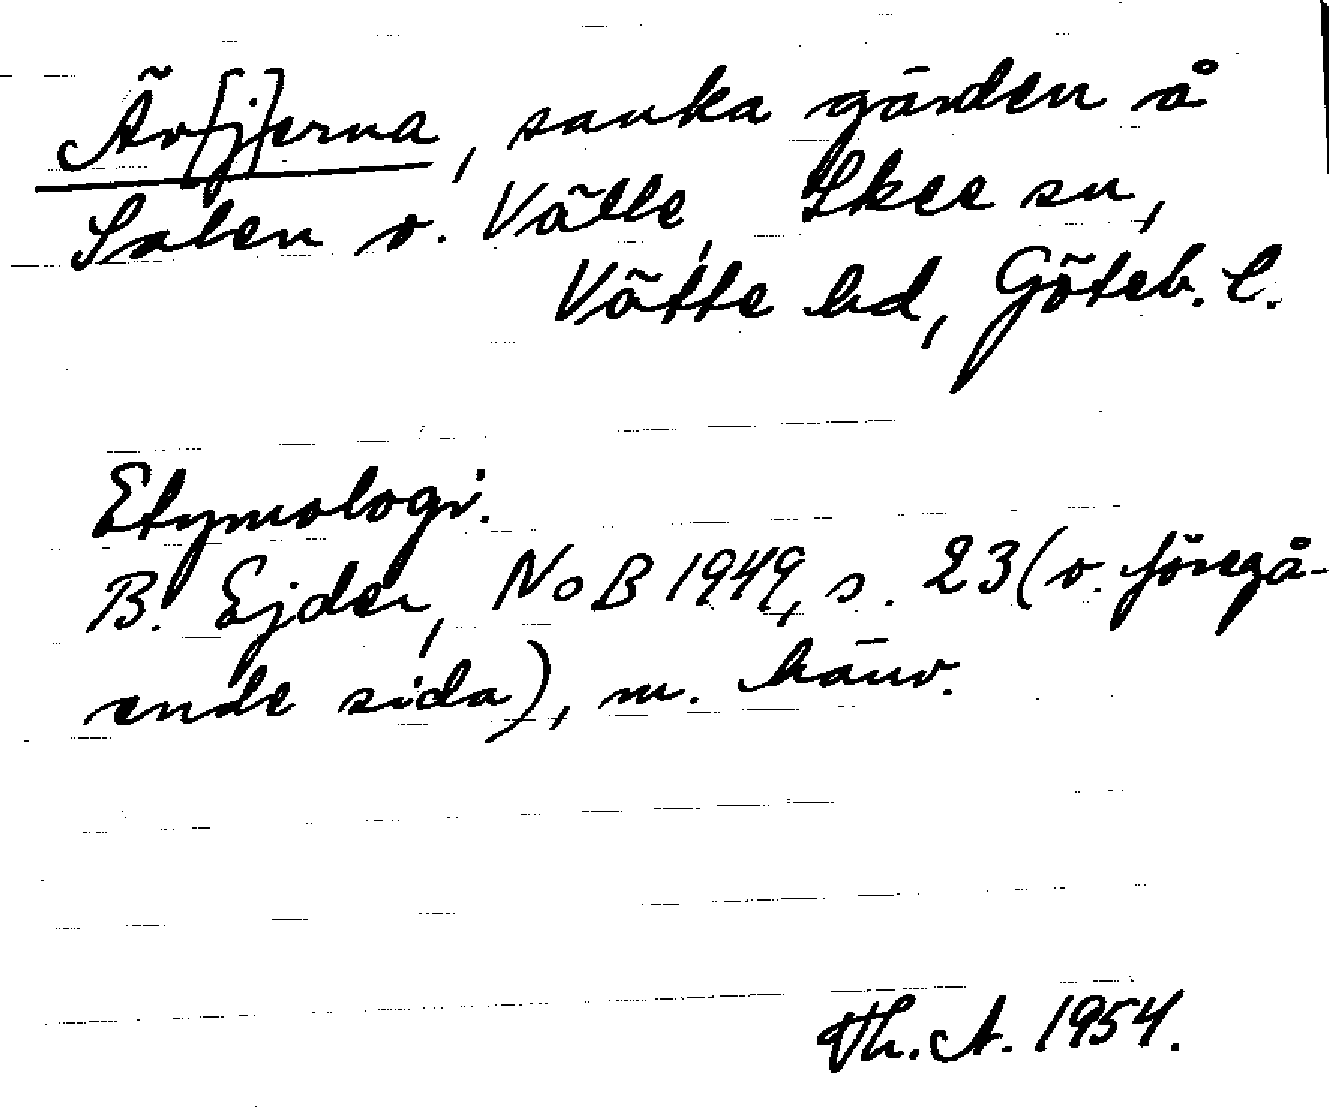 Äv[j]erna, sanka gärden å
Salen o. Välle, Skee sn,
Vätte hd, Göteb. l.
Etymologi.
B. Ejder, NoB 1949, s. 23 (o. föregå-
ende sida), m. hänv.
Th. A. 1954.